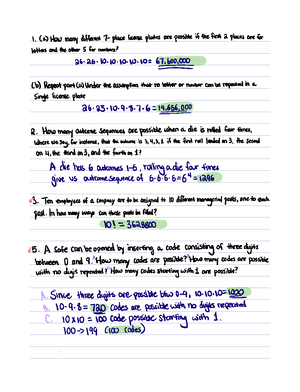 1. (a) How many different 7-place license plates are possible if the first 2 places are for
letters and the other 5 for numbers?
26·26·10·10·10·10·10 = 67,600,000
(b) Repeat part (a) under the assumption that no letter or number can be repeated in a
single license plate
26·25·10·9·8·7·6 = 19,656,000
2. How many outcome sequences are possible when a die is rolled four times,
where we say, for instance, that the outcome is 3, 4, 3, 1 if the first roll landed on 3, the second
on 4, the third on 3, and the fourth on 1?
A die has 6 outcomes 1-6, rolling a die four times
give us outcome sequence of 6·6·6·6 = 6⁴ = 1296
3. Ten employees of a company are to be assigned to 10 different managerial posts, one to each
post. In how many ways can these posts be filled?
10! = 3628800
5. A safe can be opened by inserting a code consisting of three digits
between 0 and 9. How many codes are possible? How many codes are possible
with no digits repeated? How many codes starting with 1 are possible?
A. Since three digits are possible btw 0-9, 10·10·10 = 1000
B. 10·9·8 = 720 codes are possible with no digits repeated
C. 10×10 = 100 code possible starting with 1.
100 -> 199 (100 codes)